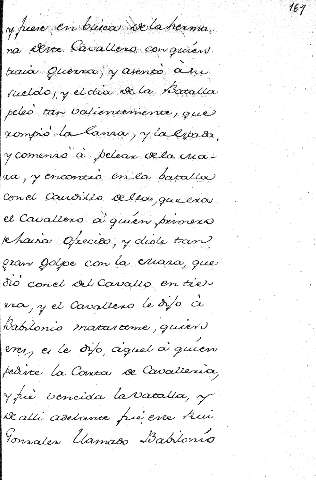 169
y fuese en busca de la herma
na deste Cavallero con quien
traia Guerra, y asentó à su
sueldo, y el dia de la Batalla
peleó tan valientemente, que
rompió la Lanza, y la Espada,
y comenzó à pelear de la ma
za, y encontró en la batalla
con el Caudillo della, que era
el Cavallero à quien primero
se havia ofrecido, y diole tan
gran golpe con la maza, que
dió con el del Cavallo en tie
rra, y el Cavallero le dijo à
Babilonio matasteme, quien
eres, e le dijo, àquel à quien
pediste la Carta de Cavalleria,
y fué vencida la vatalla, y
de alli adelante fué este Rui
Gonzalez llamado Babilonio